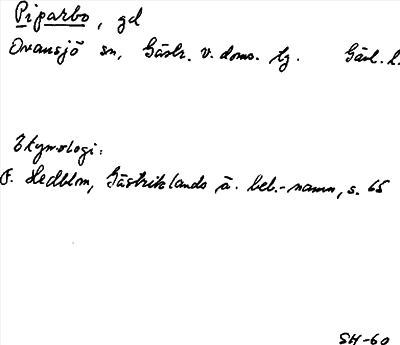 Piparbo, gd
Ovansjö sn, Gästr. v. doms. tg. Gävl. l.
Etymologi:
F. Hedblom, Gästriklands ä. beb.-namn, s. 65
SH-60